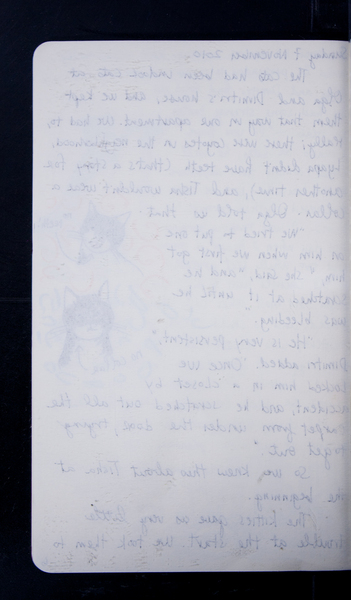 Sunday 7 November 2010.
The cats had been indoor cats at
Elya and Dimitri's house, and we kept
them that way in our apartment. We had to,
really; there were coyotes in the neighborhood,
didn't have teeth (that's a story for
another time), and Tisha wouldn't wear a
collar. Elya told us that
"We tried to put one
on him when we first got
him," she said, "and he
scratched at it until he
was bleeding."
"He is very persistent,"
Dimitri added. "Once we
locked him in a closet by
accident, and he scratched out all the
carpet from under the door, trying
to get out."
So we knew this about Tisha at
the beginning.
The kitties gave us very little
trouble at the start. We took them to